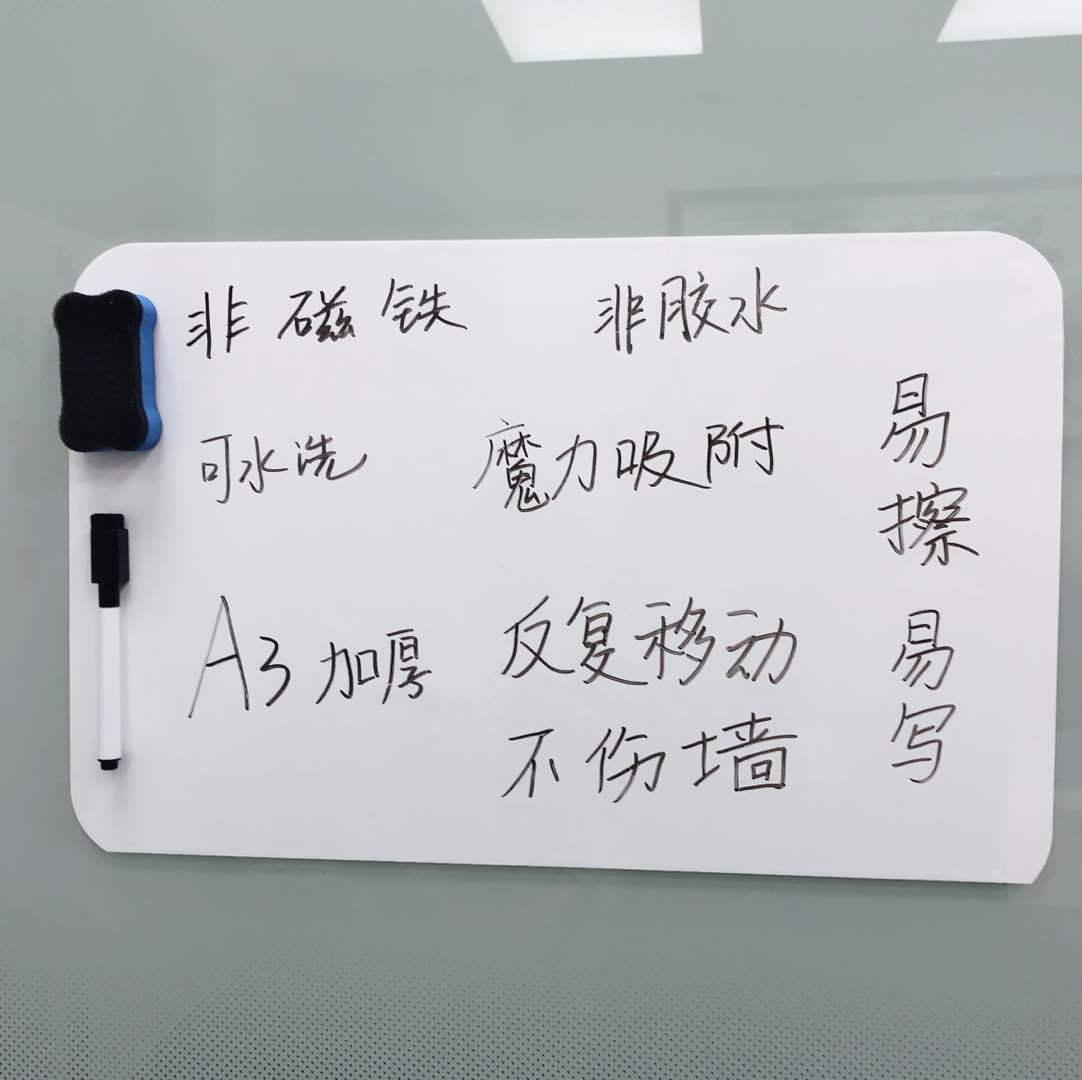 非磁铁 非胶水
可水洗 魔力吸附
A3加厚 反复移动
不伤墙
易擦
易写